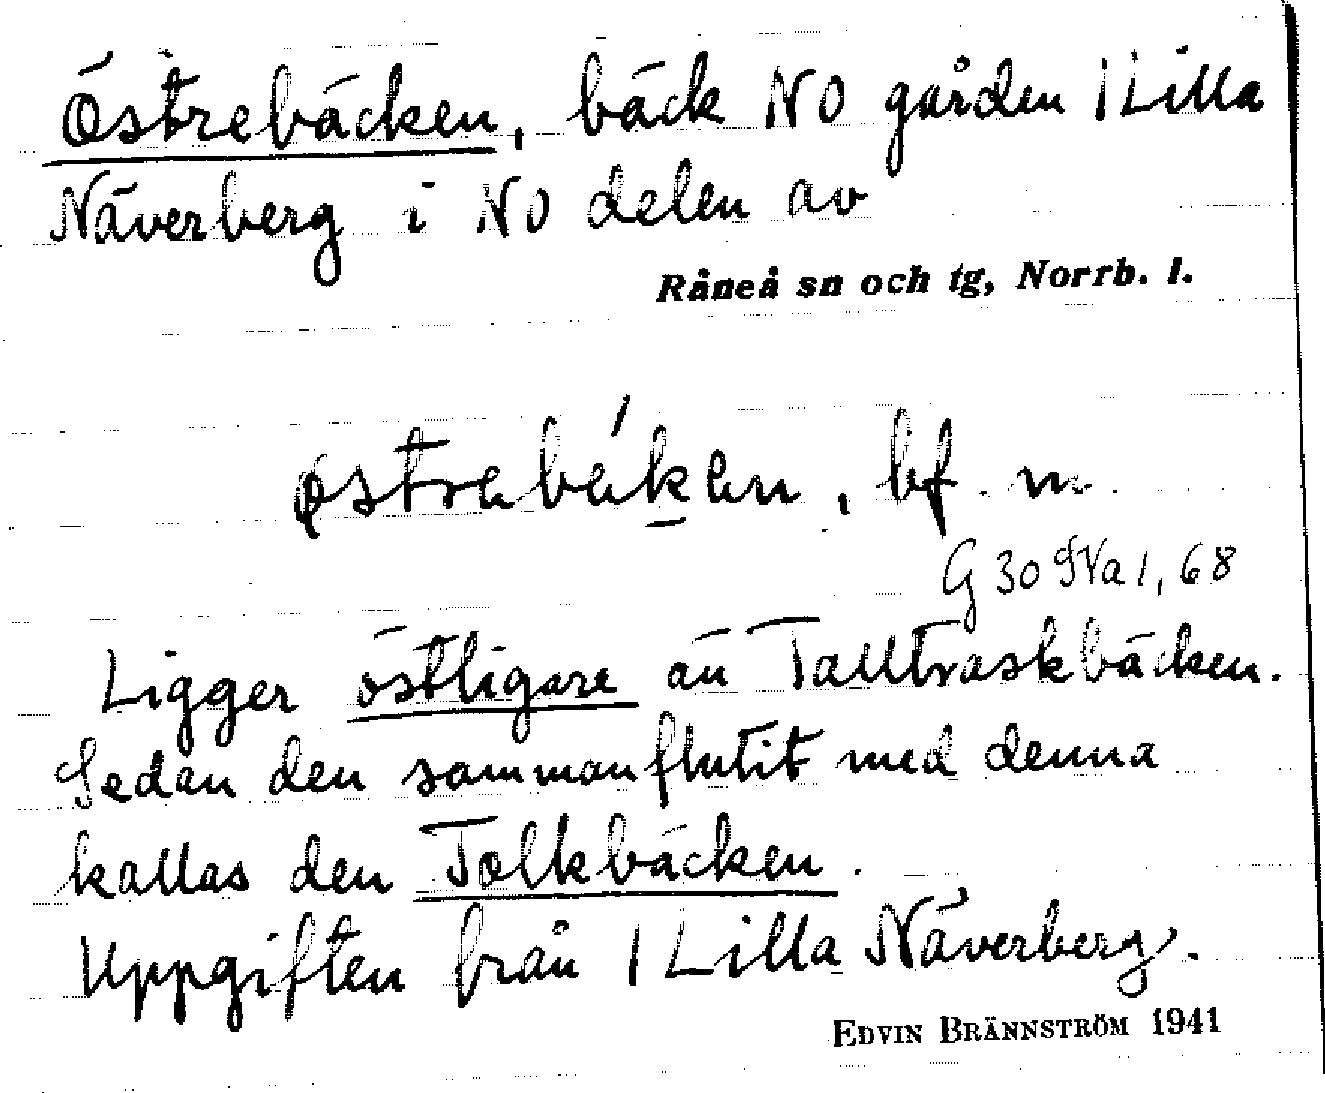 Östrebäcken, bäck NO gården 1 Lilla
Näverberg i NO delen av
Råneå sn och tg, Norrb. l.
bf. m.
G 30 NVa 1, 68
Ligger östligare än Tallträskbäcken.
Sedan den sammanflutit med denna
kallas den Tolkbäcken.
Uppgiften från 1 Lilla Näverberg.
EDVIN BRÄNNSTRÖM 1941